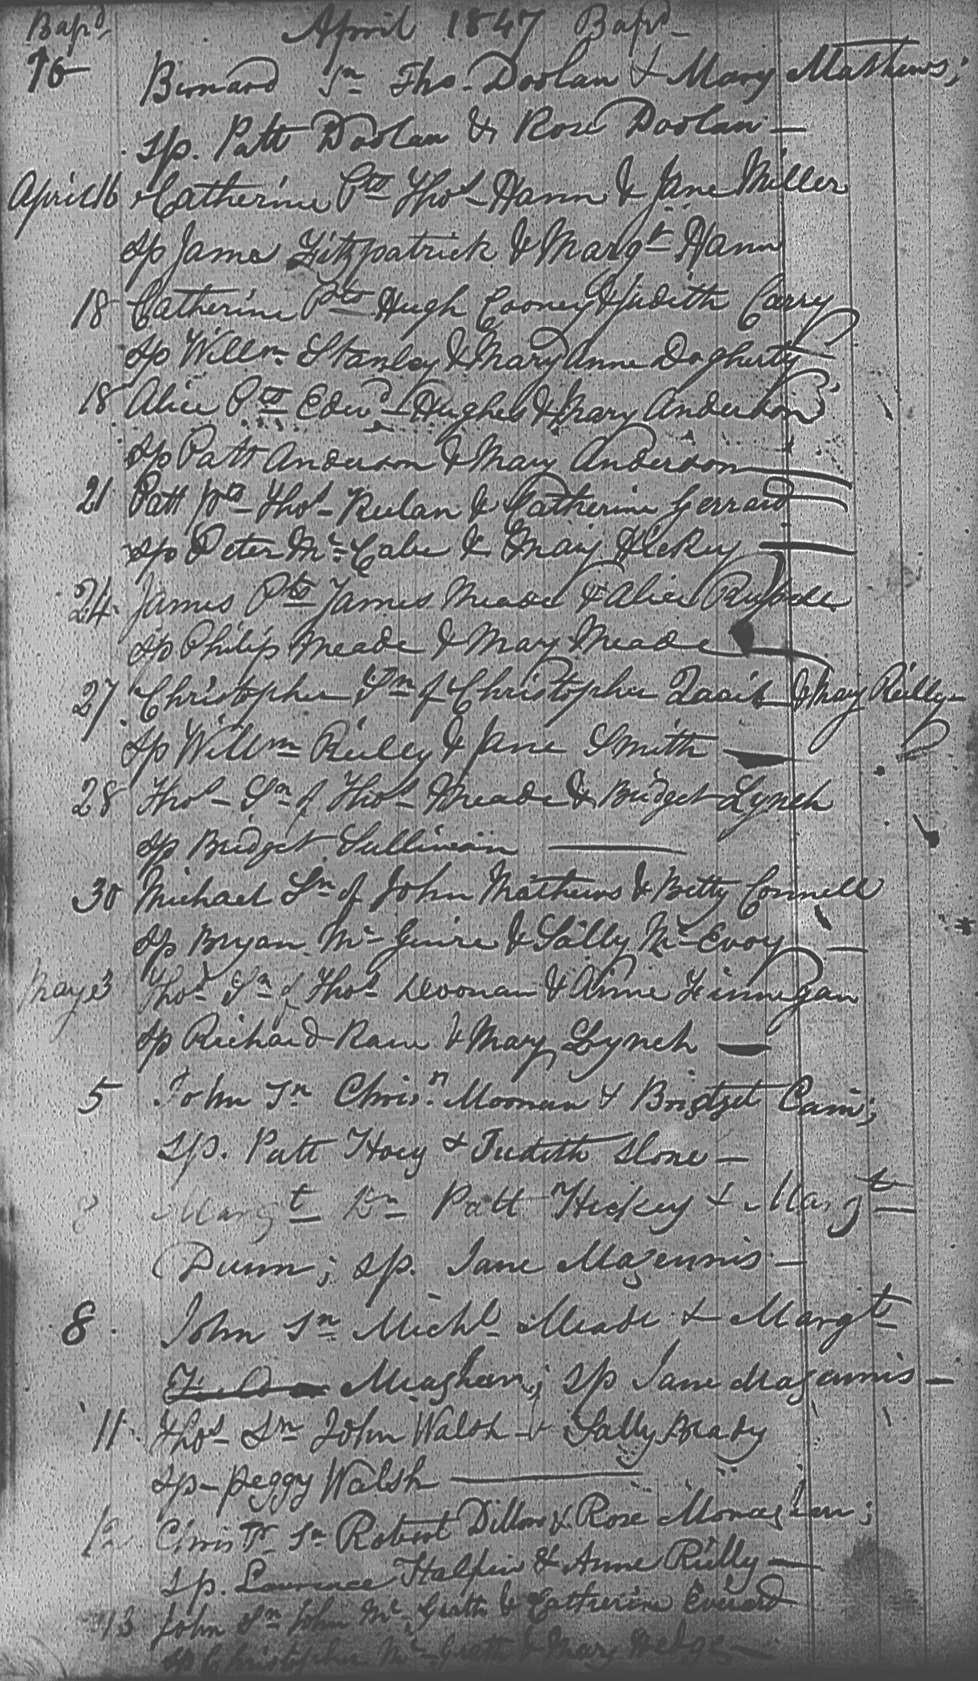 Bapd April 1847 Bapd
16 Bernard Sn Ths. Doolan & Mary Mathews;
Sp. Patt Doolan & Rose Doolan —
April 16 Catherine Pts Thos Hann & Jane Miller
Sp James Fitzpatrick & Margt Hann
18 Catherine Pts Hugh Cooney & Judith Carry
Sp Willm Stanley & Mary Anne Dogherty
18 Alice Pts Edwd Hughes & Mary Anderson
Sp Patt Anderson & Mary Anderson
21 Patt Pts Thos Keelan & Catherine Gerrard
Sp Peter Mc Cabe & Mary Hickey —
24 James Pts James Meade & Alice
Sp Philip Meade & Mary Meade
27 Christopher Sn of Christopher & Mary Reilly
Sp Willm Reilly & Jane Smith —
28 Thos Sn of Thos Meade & Bridget Lynch
Sp Bridget Sullivian —
30 Michael Sn of John Mathews & Betty Connell
Sp Bryan Mc Guire & Sally Mc Evoy —
May 3 Thos Sn of Thos Noonan & Anne Finnegan
Sp Richard & Mary Lynch —
5 John Sn Chrisr. Moonan & Bridget Cain;
Sp. Patt Hoey & Judith Slone —
8 Margt Dr Patt Hickey & Margt
Dunn; Sp. Jane Magennis —
8 John Sn Michl Meade & Margt
Meaghen; Sp Jane Magennis —
11 Thos Sn John Walsh & Sally Brady
Sp — Peggy Walsh —
12 Christr Sn Robert Dillon & Rose Monaghan;
Sp. Lawrence Halpin & Anne Reilly —
13 John Sn John Mc Grath & Catherine Everard
Sp Christopher Mc Grath & Mary Hedge —